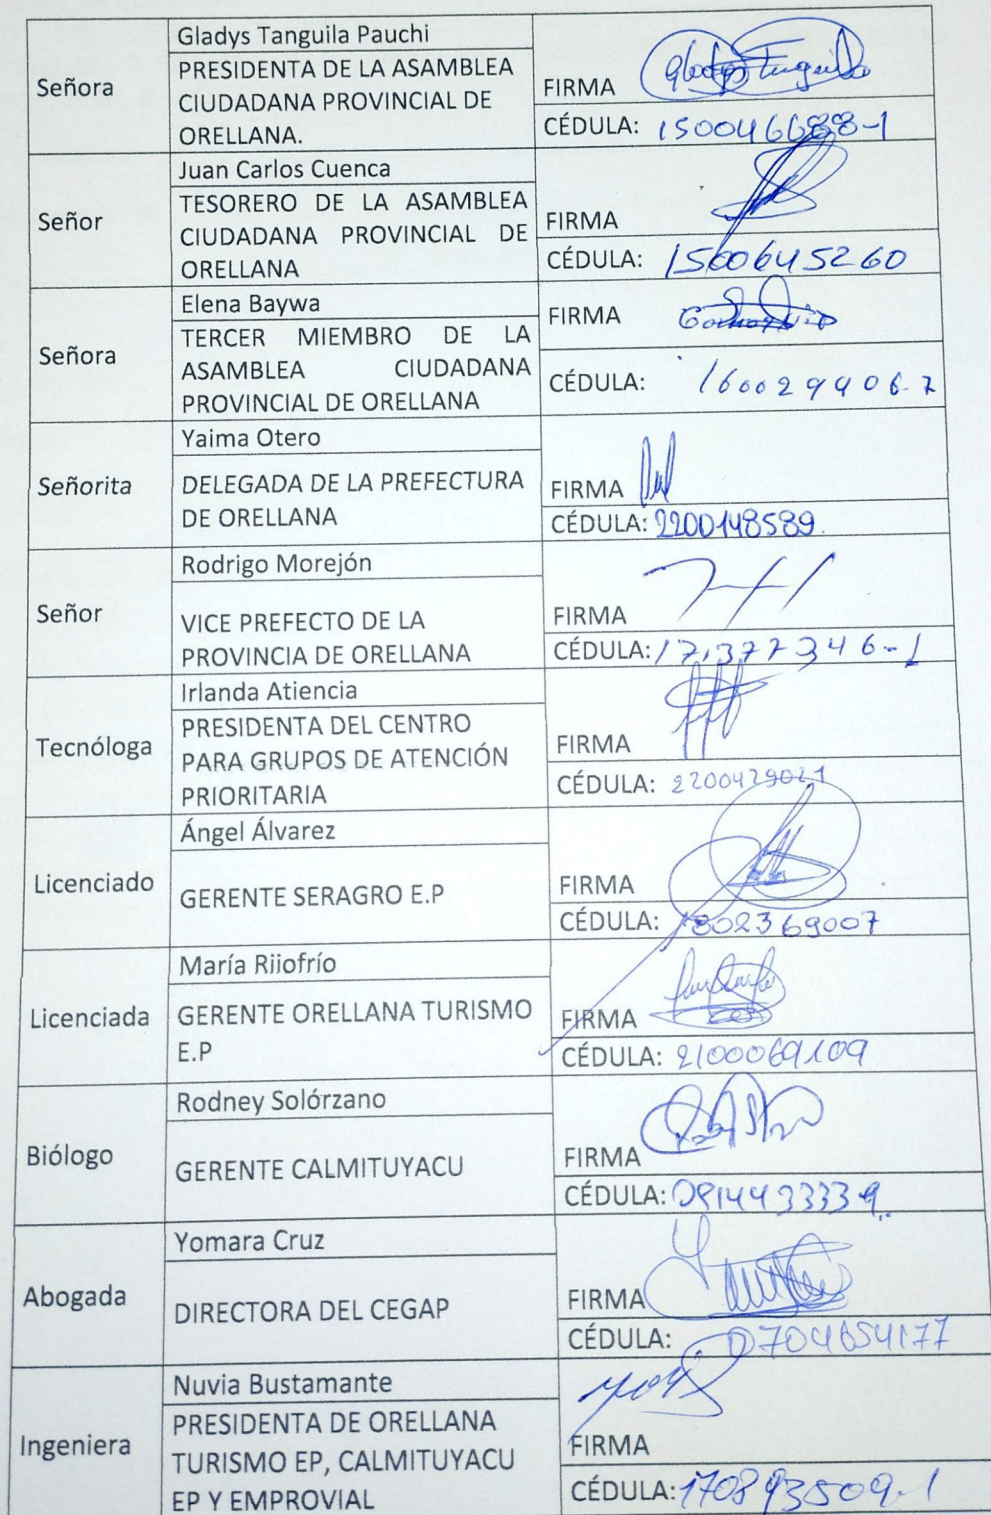 Señora
Gladys Tanguila Pauchi
PRESIDENTA DE LA ASAMBLEA
CIUDADANA PROVINCIAL DE
ORELLANA.
FIRMA Gladys Tnguila
CÉDULA: 150046688-1
Señor
Juan Carlos Cuenca
TESORERO DE LA ASAMBLEA
CIUDADANA PROVINCIAL DE
ORELLANA
FIRMA
CÉDULA: 1500645260
Señora
Elena Baywa
TERCER MIEMBRO DE LA
ASAMBLEA CIUDADANA
PROVINCIAL DE ORELLANA
FIRMA
CÉDULA: 1600299406-7
Señorita
Yaima Otero
DELEGADA DE LA PREFECTURA
DE ORELLANA
FIRMA
CÉDULA: 2200148589.
Señor
Rodrigo Morejón
VICE PREFECTO DE LA
PROVINCIA DE ORELLANA
FIRMA
CÉDULA: 171377346-1
Tecnóloga
Irlanda Atiencia
PRESIDENTA DEL CENTRO
PARA GRUPOS DE ATENCIÓN
PRIORITARIA
FIRMA
CÉDULA: 2200429021
Licenciado
Ángel Álvarez
GERENTE SERAGRO E.P
FIRMA
CÉDULA: 1802369007
Licenciada
María Riiofrío
GERENTE ORELLANA TURISMO
E.P
FIRMA
CÉDULA: 2100069109
Biólogo
Rodney Solórzano
GERENTE CALMITUYACU
FIRMA
CÉDULA:
Abogada
Yomara Cruz
DIRECTORA DEL CEGAP
FIRMA
CÉDULA: 0704654177
Ingeniera
Nuvia Bustamante
PRESIDENTA DE ORELLANA
TURISMO EP, CALMITUYACU
EP Y EMPROVIAL
FIRMA
CÉDULA: 170893509-1